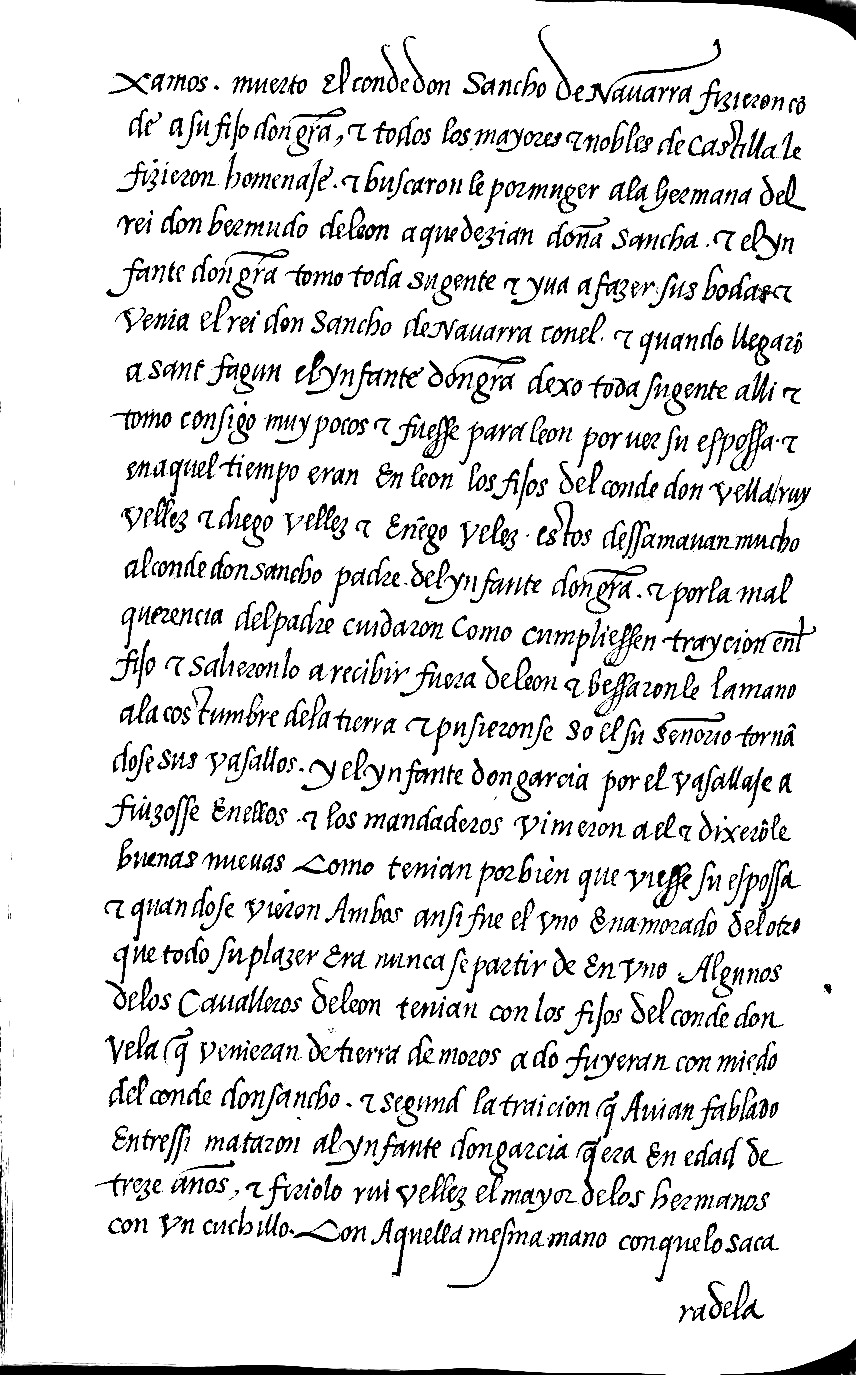 xamos. muerto El conde don Sancho de Navarra fizieron cõ
de a su fijo don gr̃a, τ todos los mayores τ nobles de Castilla le
fizieron homenaje. τ buscaron le por muger a la hermana del
rei don bermudo de leon a que dezian doña Sancha. τ el yn
fante don gr̃a tomo toda su gente τ yua a fazer sus bodas τ
venia el rei don Sancho de Navarra con el. τ quando llegarõ
a sant fagun el ynfante don gr̃a dexo toda su gente alli τ
tomo consigo muy pocos τ fuesse para leon por ver su espossa. τ
en aquel tiempo eran En leon los fijos del conde don vella/ruy
vellez τ diego vellez τ Enẽgo velez. estos dessamauan mucho
al conde don sancho padre del ynfante don gr̃a. τ por la mal
querencia del padre cuidaron Como cumpliessen traycion enl̃
fijo τ salieronlo a recibir fuera de leon τ bessaronle la mano
a la costumbre de la tierra τ pusieronse so el su señorio tornã
dose sus vasallos. y el ynfante don garcia por el vasallaje a
fiuzosse En ellos. τ los mandaderos vinieron a el τ dixerõle
buenas nuevas Como tenian por bien que viesse su espossa
τ quando se vieron Ambos ansi fue el vno Enamorado del otro
que todo su plazer Era nunca se partir de En vno Algunos
de los Cavalleros de leon tenian con los fijos del conde don
Vela q̃ venieran de tierra de moros a do fuyeran con miedo
del conde don sancho. τ segund la traicion q̃ Avian fablado
Entressi mataron al ynfante don garcia q̃ era En edad de
treze años, τ firiolo rui vellez el mayor de los hermanos
con vn cuchillo. Con Aquella mesma mano con que lo saca
ra de la